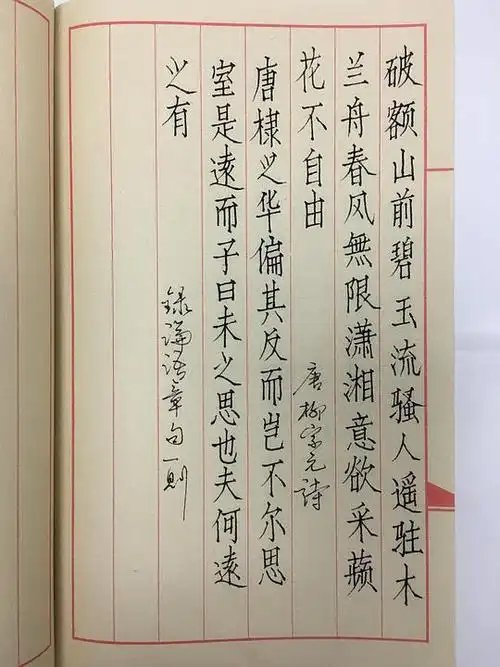 破额山前碧玉流骚人遥驻木
兰舟春风無限潇湘意欲采蘋
花不自由
唐柳宗元詩
唐棣之华偏其反而岂不尔思
室是遠而子曰未之思也夫何遠
之有
録論语章句一則